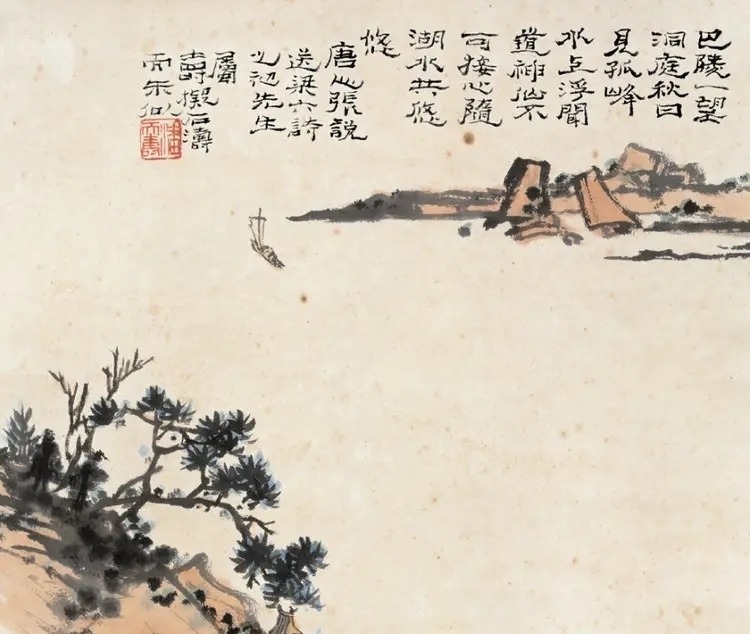 巴陵一望
洞庭秋日
見孤峰
水上浮聞
道神仙不
可接心隨
湖水共悠
悠
唐人張說
送梁六詩
先生
屬
壽擬石濤
而未似